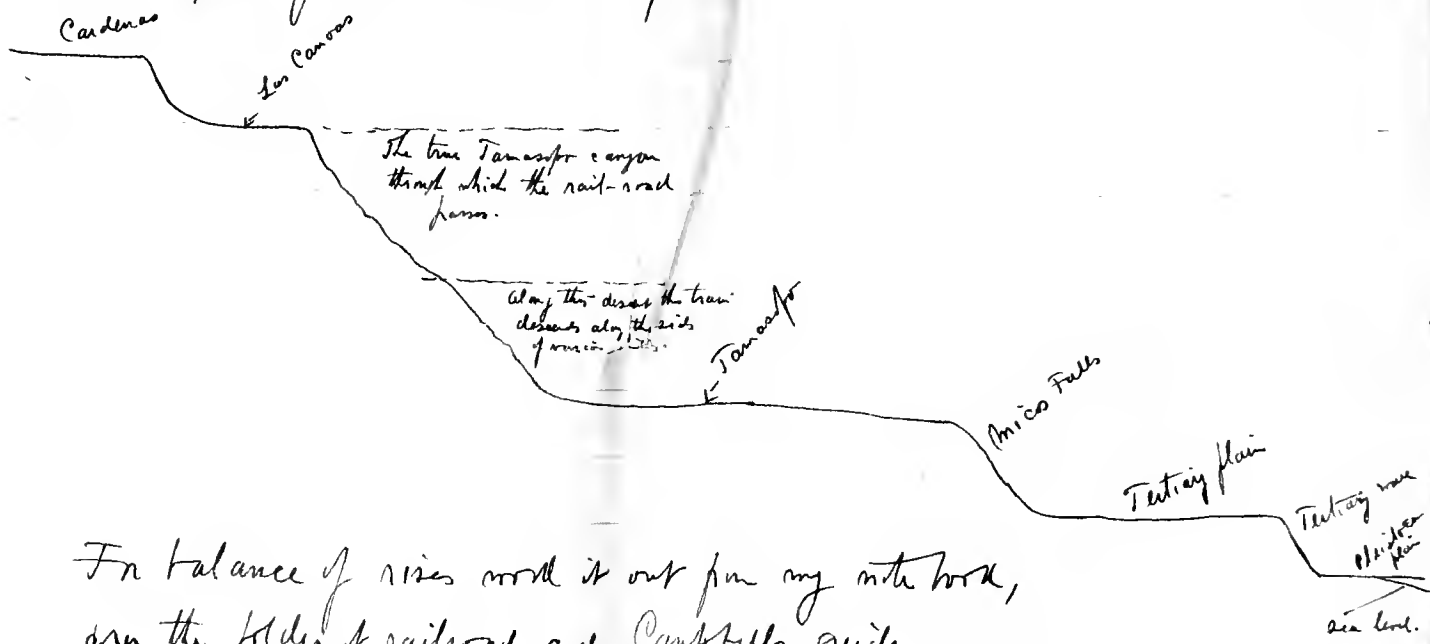 Cardenas
Las Canoas
The true Tamasopo canyon
through which the rail-road
passes.
Along this descent the train
descends along the side
of various
Tamasopo
Micos Falls
Tertiary plain
Tertiary
plain
sea level.
For balance of rises work it out from my note book,
the folder of railroad and Campbell's guide